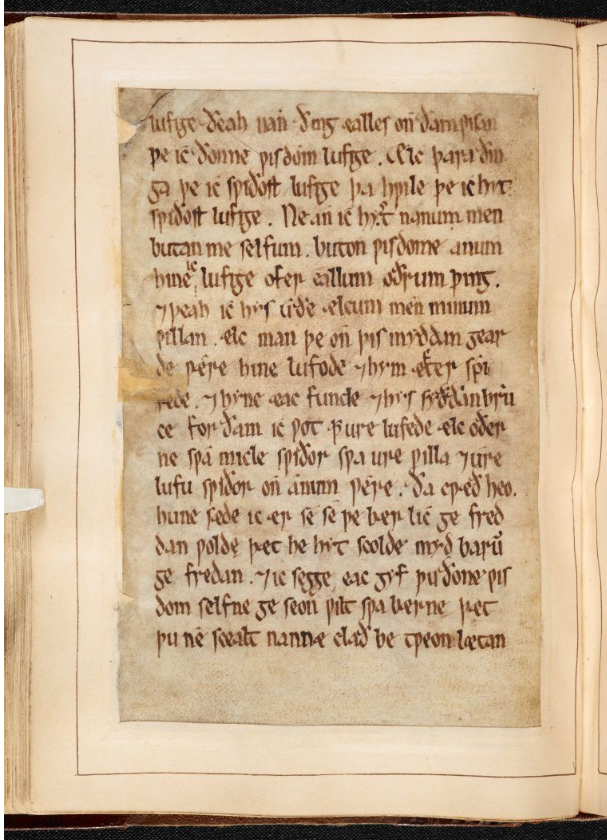 lufige ðeah nan ðing ealles on ðam ƿisan
ƿe ic ðonne ƿisdom lufige. Ælc þara ðin
ga þe ic sƿiðost lufige þa hƿile þe ic hyt
sƿiðost lufige. Ne an ic hyt nanum men
butan me selfum. buton ƿisdome anum
hine ic lufige ofer eallum oðrum þing.
⁊ þeah ic hys uðe ælcum men minum
ƿillan. ælc man þe on þis myddan gear
de ƿere hine lufode ⁊ hym efter spi
rede. ⁊ hyne eac funde ⁊ hys syððan brū
ce for ðam ic ƿot ꝥ ure lufede ælc oðer
ne sƿa micle sƿiðor sƿa ure ƿilla ⁊ ure
lufu sƿiðor on anum ƿere. Ða cƿeð heo.
hune sede ic er se se þe ber lic ge fred
dan ƿolde þet he hyt scolde myd barū
ge fredan. ⁊ ic segge eac gyf þu ðone ƿis
dom selfne ge seon ƿilt sƿa berne þet
þu ne scealt nanne clað be tƿeon lætan